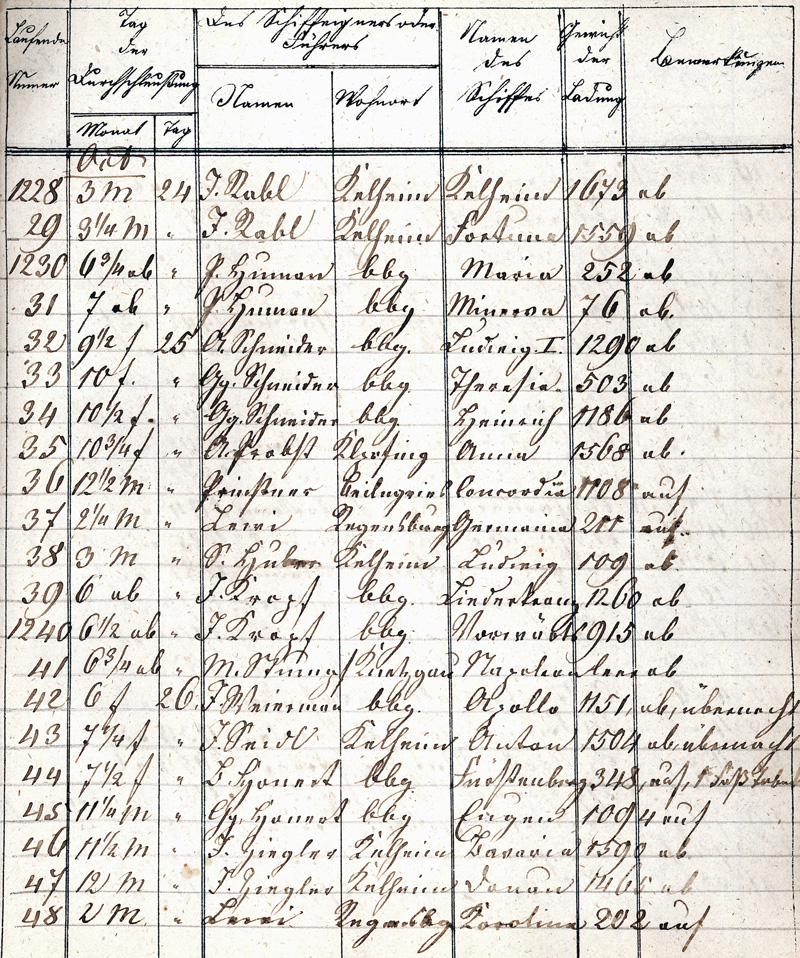 Laufende Numer
Tag der Durchschleußung
Des Schiffeigners oder Führers
Namen des Schiffes
Gewicht der Ladung
Bemerkungen
Monat Tag Namen Wohnort
Oct
1228 3 M 24 J. Rabl Kelheim Kelheim 1673 ab
29 3 1/4 M " J. Rabl Kelheim Fortuna 1559 ab
1230 6 3/4 ab " J. Human bbg Maria 252 ab
31 7 ab " J. Human bbg Minerva 76 ab.
32 9 1/2 f 25 A. Schneider bbg. Ludwig I. 1290 ab
33 10 f. " Gg. Schneider bbg. Theresia. 503 ab
34 10 1/2 f. " Gg. Schneider bbg. Heinrich 1186 ab
35 10 3/4 f " A. Probst Anna 1568 ab.
36 12 1/2 M " Beilngries Concordia 1108 auf
37 2 1/4 M " Lewi Regensburg Germania 211 auf.
38 3 M " S. Huber Kelheim Ludwig 109 ab
39 6 ab " J. Kropf bbg. Liederkranz 1260 ab
1240 6 1/2 ab " J. Kropf bbg. Vorwärts 915 ab
41 6 3/4 ab " M. Napoleon leer ab
42 6 f 26. J. Weierman bbg. Apollo 1151, ab, übernacht
43 7 1/4 f " J. Seidl Kelheim Anton 1504 ab, übernacht
44 7 1/2 f " B. Honert bbg Fürstenberg 348, auf, 1
45 11 1/4 M " Gg. Honert bbg Eugen 1094 auf
46 11 1/2 M " J. Ziegler Kelheim Bavaria 1590 ab
47 12 M " J. Ziegler Kelheim Donau 1465 ab
48 2 M. " Lewi Regensbg Karolina 202 auf